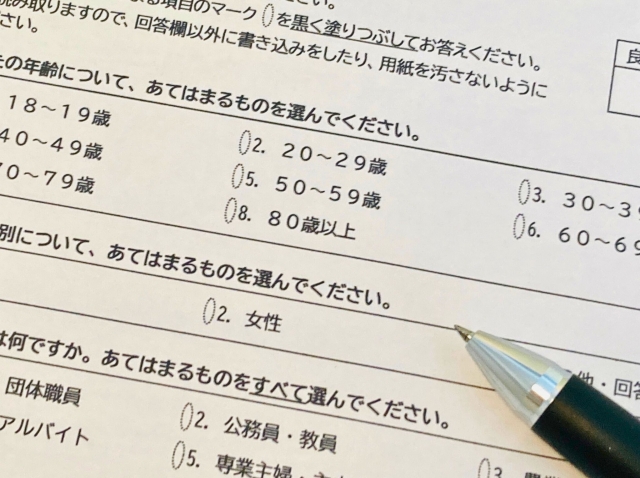 る項目のマーク を黒く塗りつぶしてお答えください。
読み取りますので、回答欄以外に書き込みをしたり、用紙を汚さないように
さい。
の年齢について、あてはまるものを選んでください。
18～19歳 2. 20～29歳 3. 30～3
40～49歳 5. 50～59歳 6. 60～69
70～79歳 8. 80歳以上
別について、あてはまるものを選んでください。
2. 女性 他・回答
は何ですか。あてはまるものをすべて選んでください。
団体職員 2. 公務員・教員 3.
アルバイト 5. 専業主婦・主